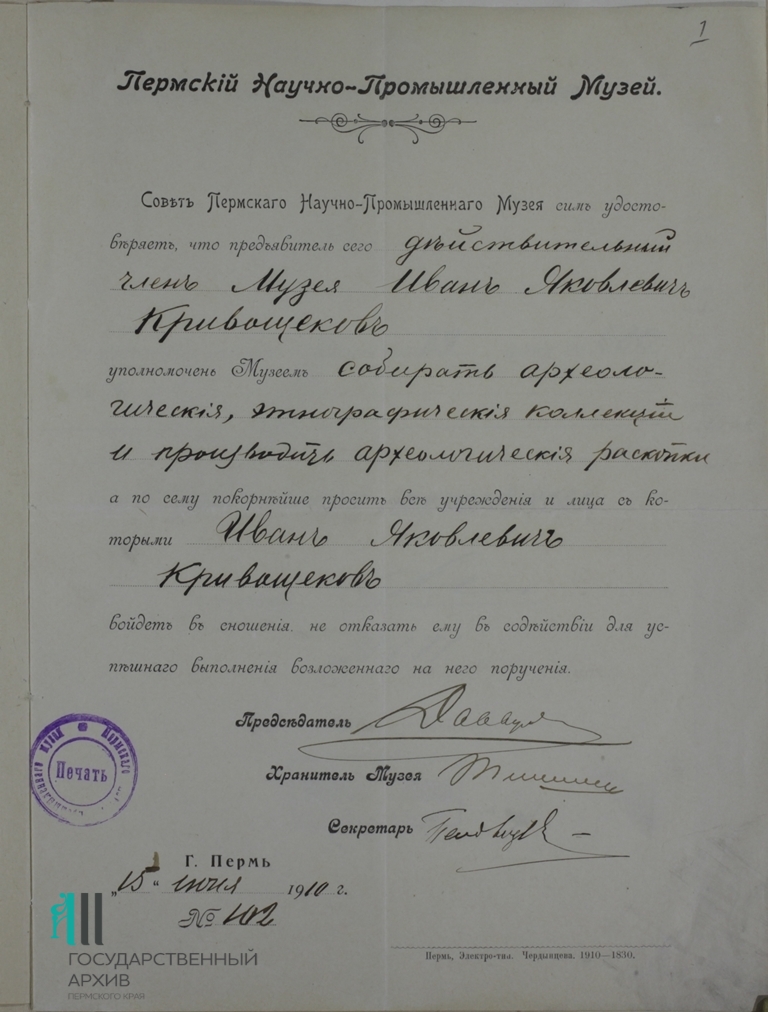 1
Пермскій Научно-Промышленный Музей.
Совѣтъ Пермскаго Научно-Промышленнаго Музея симъ удосто-
вѣряетъ, что предъявитель сего дѣйствительный
членъ Музея Иванъ Яковлевичъ
Кривощековъ
уполномоченъ Музеемъ собирать археоло-
гическія, этнографическія коллекціи
и производить археологическія раскопки
а по сему покорнѣйше проситъ всѣ учрежденія и лица съ ко-
торыми Иванъ Яковлевичъ
Кривощековъ
войдетъ въ сношенія, не отказать ему въ содѣйствіи для ус-
пѣшнаго выполненія возложеннаго на него порученія.
Предсѣдатель
Хранитель Музея
Секретарь
Печать
Пермскаго
Музей
Г. Пермь
„15“ іюня 1910 г.
№ 102
ГОСУДАРСТВЕННЫЙ
АРХИВ
ПЕРМСКОГО КРАЯ
Пермь, Электро-тип. Чердынцева. 1910—1830.